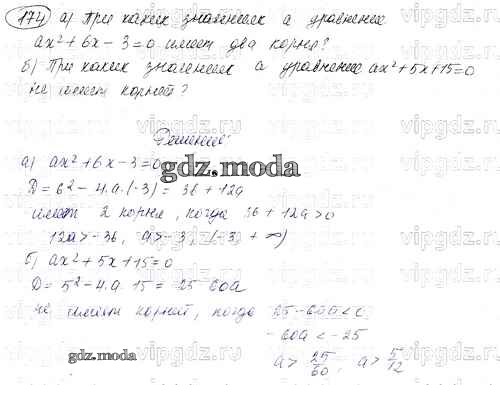 174 а) При каких значениях а уравнение
ax² + 6x - 3 = 0 имеет два корня?
б) При каких значениях а уравнение ax² + 5x + 15 = 0
не имеет корней?
Решение
а) ax² + 6x - 3 = 0
gdz.moda
D = 6² - 4·a·(-3) = 36 + 12a
имеет 2 корня, когда 36 + 12a > 0
12a > -36, a > -3, (-3, +∞)
б) ax² + 5x + 15 = 0
D = 5² - 4·a·15 = 25 - 60a
не имеет корней, когда 25 - 60a <
-60a < -25
gdz.moda
a > 25/60, a > 5/12